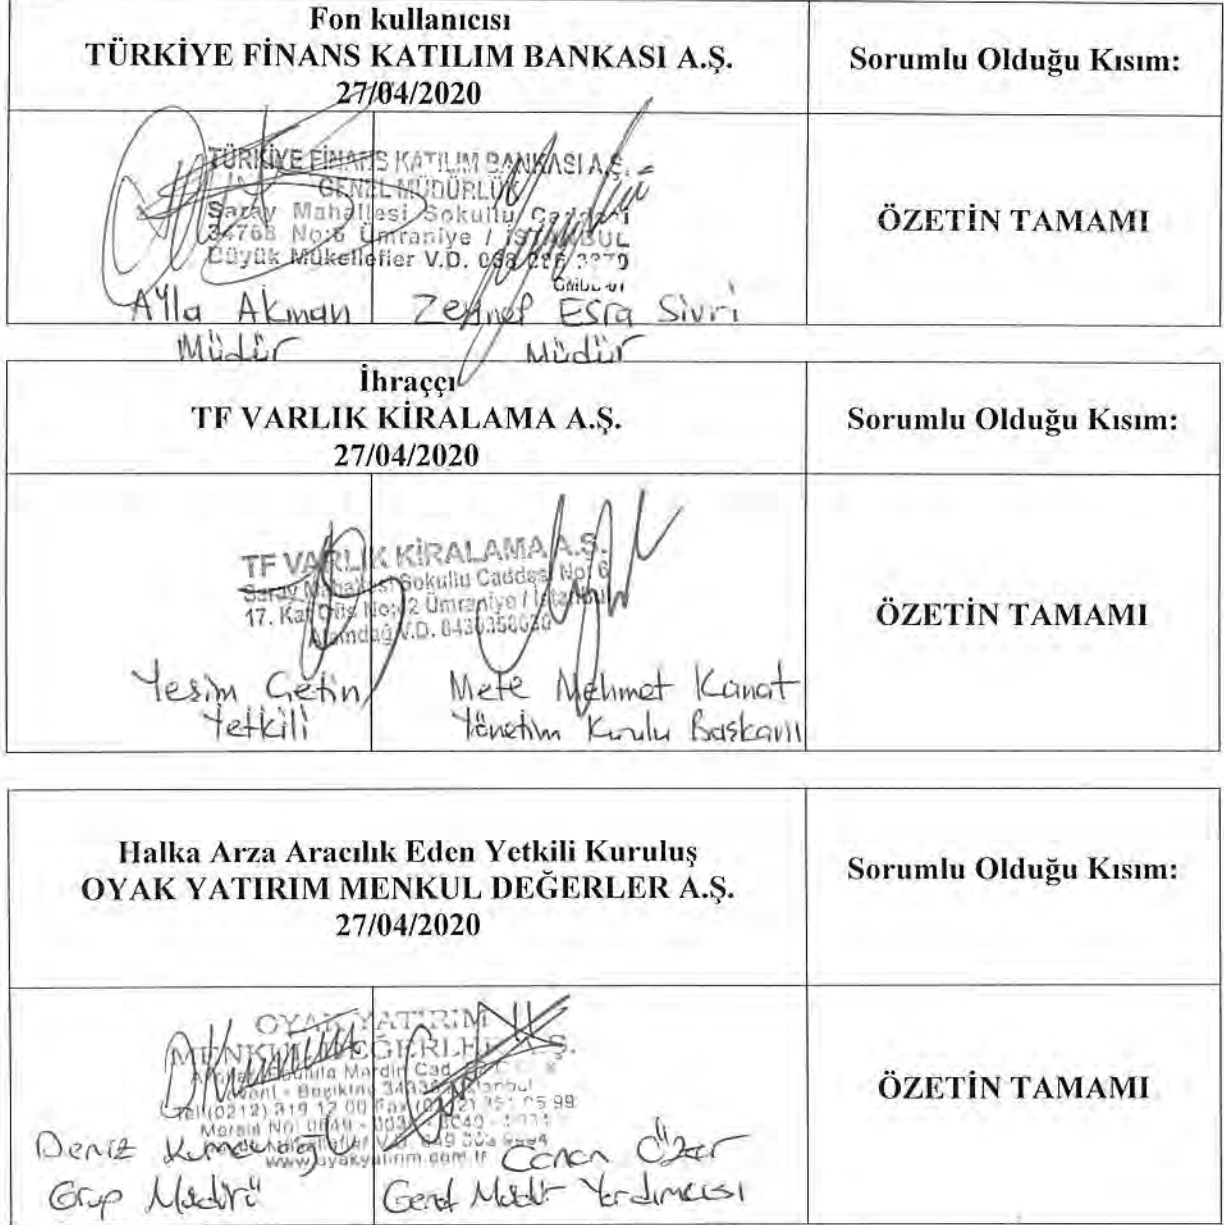 Fon kullanıcısı
TÜRKİYE FİNANS KATILIM BANKASI A.Ş.
27/04/2020
Sorumlu Olduğu Kısım:
TÜRKİYE FİNANS KATILIM BANKASI A.Ş.
GENEL MÜDÜRLÜK
Saray Mahallesi Sokullu Caddesi
34768 No:6 Ümraniye / İSTANBUL
Büyük Mükellefler V.D. 068
ÖZETİN TAMAMI
Ayla Akman
Müdür
Zeynep Esra Sivri
Müdür
İhraççı
TF VARLIK KİRALAMA A.Ş.
27/04/2020
Sorumlu Olduğu Kısım:
TF VARLIK KİRALAMA A.Ş.
Saray Mahallesi Sokullu Caddesi No: 6
17. Kat Ofis No: Ümraniye / İstanbul
Alemdağ V.D.
ÖZETİN TAMAMI
Yeşim Çetin
Yetkili
Mete Mehmet Kanat
Yönetim Kurulu Başkanı
Halka Arza Aracılık Eden Yetkili Kuruluş
OYAK YATIRIM MENKUL DEĞERLER A.Ş.
27/04/2020
Sorumlu Olduğu Kısım:
OYAK YATIRIM
MENKUL DEĞERLER A.Ş.
Mardin Cad.
Tel:(0212) 319 12 00 Fax
www.oyakyatirim.com.tr
ÖZETİN TAMAMI
Deniz
Grup Müdürü
Canan Özer
Genel Müdür Yardımcısı